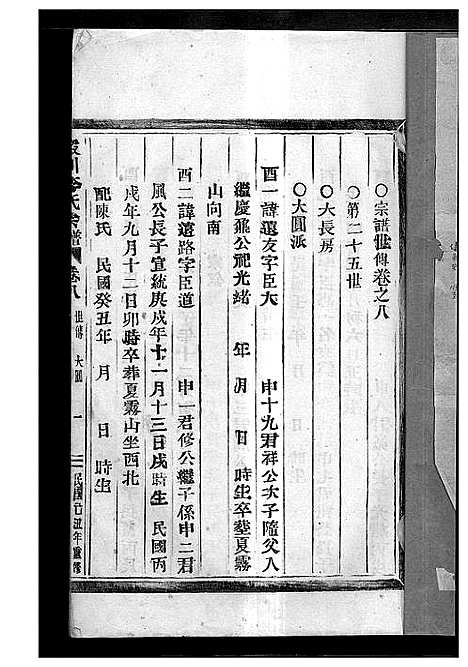 ○宗譜世傳卷之八
○第二十五世
○大長房
○大圓派
酉一諱還友字臣大 申十九君祥公次子隨父入
繼慶飛公祀光緒 年 月 日 時生卒塟夏霧
山向南
酉二諱遠路字臣道 申一君修公繼子係申二君
風公長子宣統庚戌年十一月十三日戌時生 民國丙
戌年九月十二日卯時卒葬夏霧山坐西北
配陳氏 民國癸丑年 月 日 時生
川李氏宗譜 卷八 世傳 大圓 一 民國己丑年重修